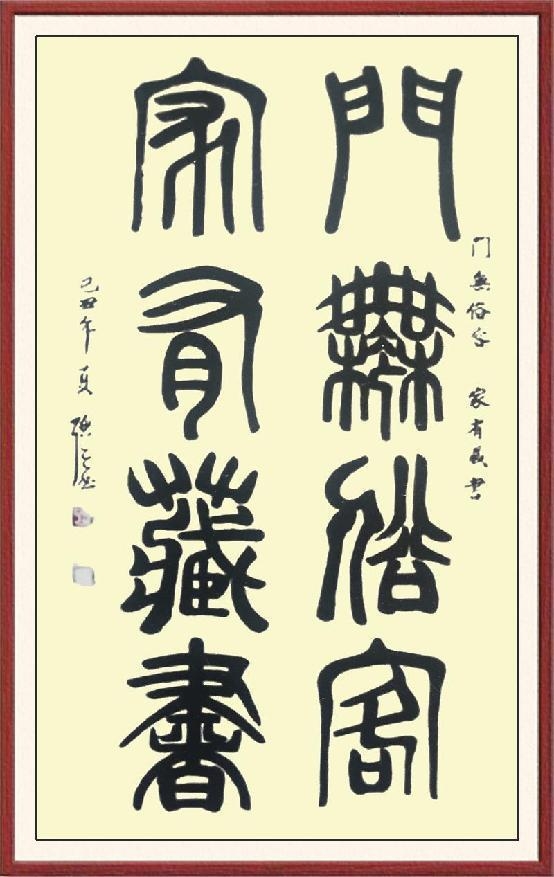 門無俗客
家有藏書
门無俗客 家有藏书
己丑年夏